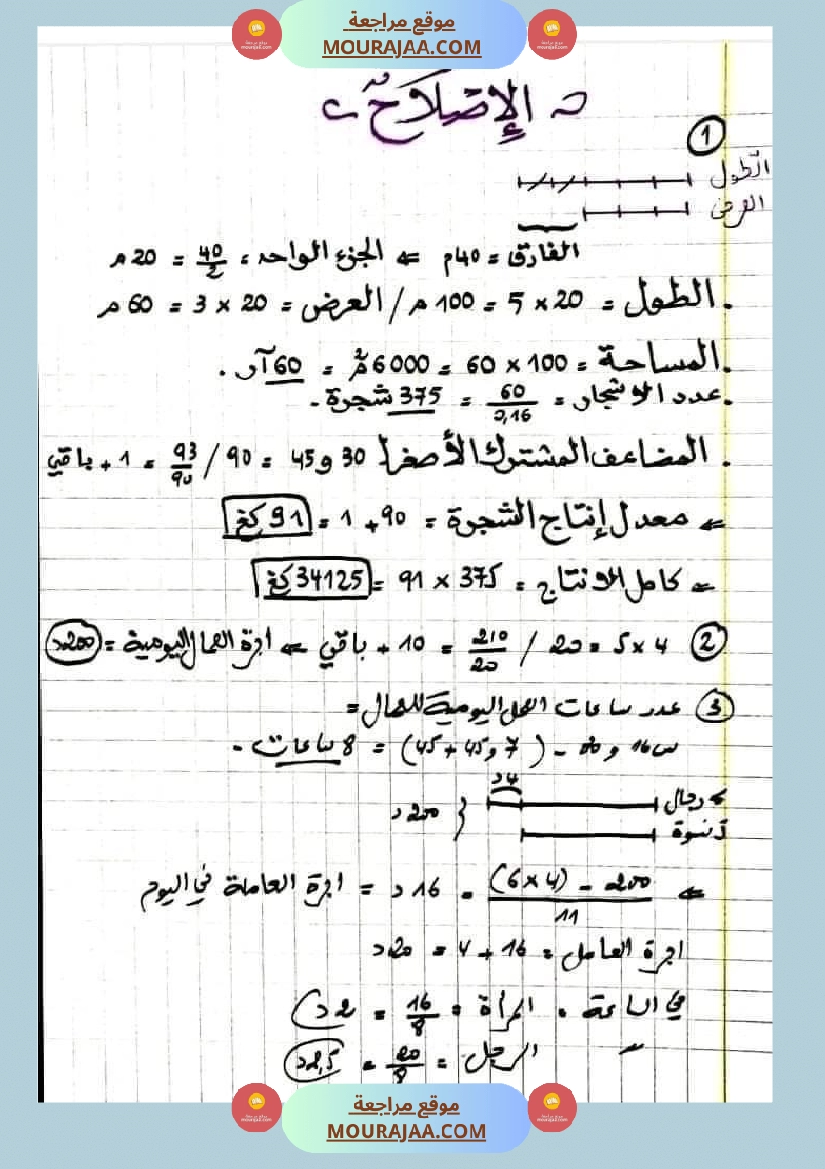 موقع مراجعة
MOURAJAA.COM
الإصلاح
1
الطول
العرض
الفارق = 40م ⇐ الجزء الواحد = 40/2 = 20 م
. الطول = 20 × 5 = 100 م / العرض = 20 × 3 = 60 م
. المساحة = 100 × 60 = 6000 م² = 60 آر .
. عدد الأشجار = 60/0,16 = 375 شجرة .
. المضاعف المشترك الأصغر لـ 30 و 45 = 90 / 93/90 = 1 + باقي
⇐ معدل إنتاج الشجرة = 90 + 1 = 91 كغ
⇐ كامل الانتاج = 375 × 91 = 34125 كغ
2 4 × 5 = 20 / 210/20 = 10 + باقي ⇐ اجرة العمال اليومية = 200د
3 عدد ساعات العمل اليومية للعمال =
س16 و - ( 7 و45 + 45) = 8 ساعات .
4د
6 رجال
5 نسوة
200 د
⇐ 200 - (4×6) / 11 = 16 د = اجرة العاملة في اليوم
اجرة العامل = 16 + 4 = 20د
في الساعة . المرأة = 16/8 = 2د
" الرجل = 20/8 = 2,5د
موقع مراجعة
MOURAJAA.COM